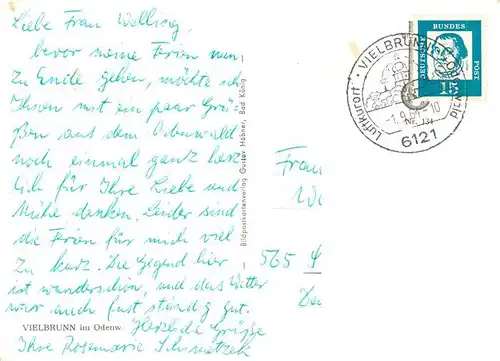 Liebe Frau Welling,
bevor meine Ferien nun
zu Ende gehen, möchte ich
Ihnen mit ein paar Grü-
ßen aus dem Odenwald
noch einmal ganz herz-
lich für Ihre Liebe und
Mühe danken. Leider sind
die Ferien für mich viel
zu kurz. Die Gegend hier
ist wunderschön, und das Wetter
war auch fast ständig gut.
VIELBRUNN im Odenw. Herzliche Grüße
Ihre Rosemarie
Bildpostkartenverlag Gustav Hübner, Bad König
Luftkurort · VIELBRUNN
6121
DEUTSCHE BUNDESPOST
15
Frau
565